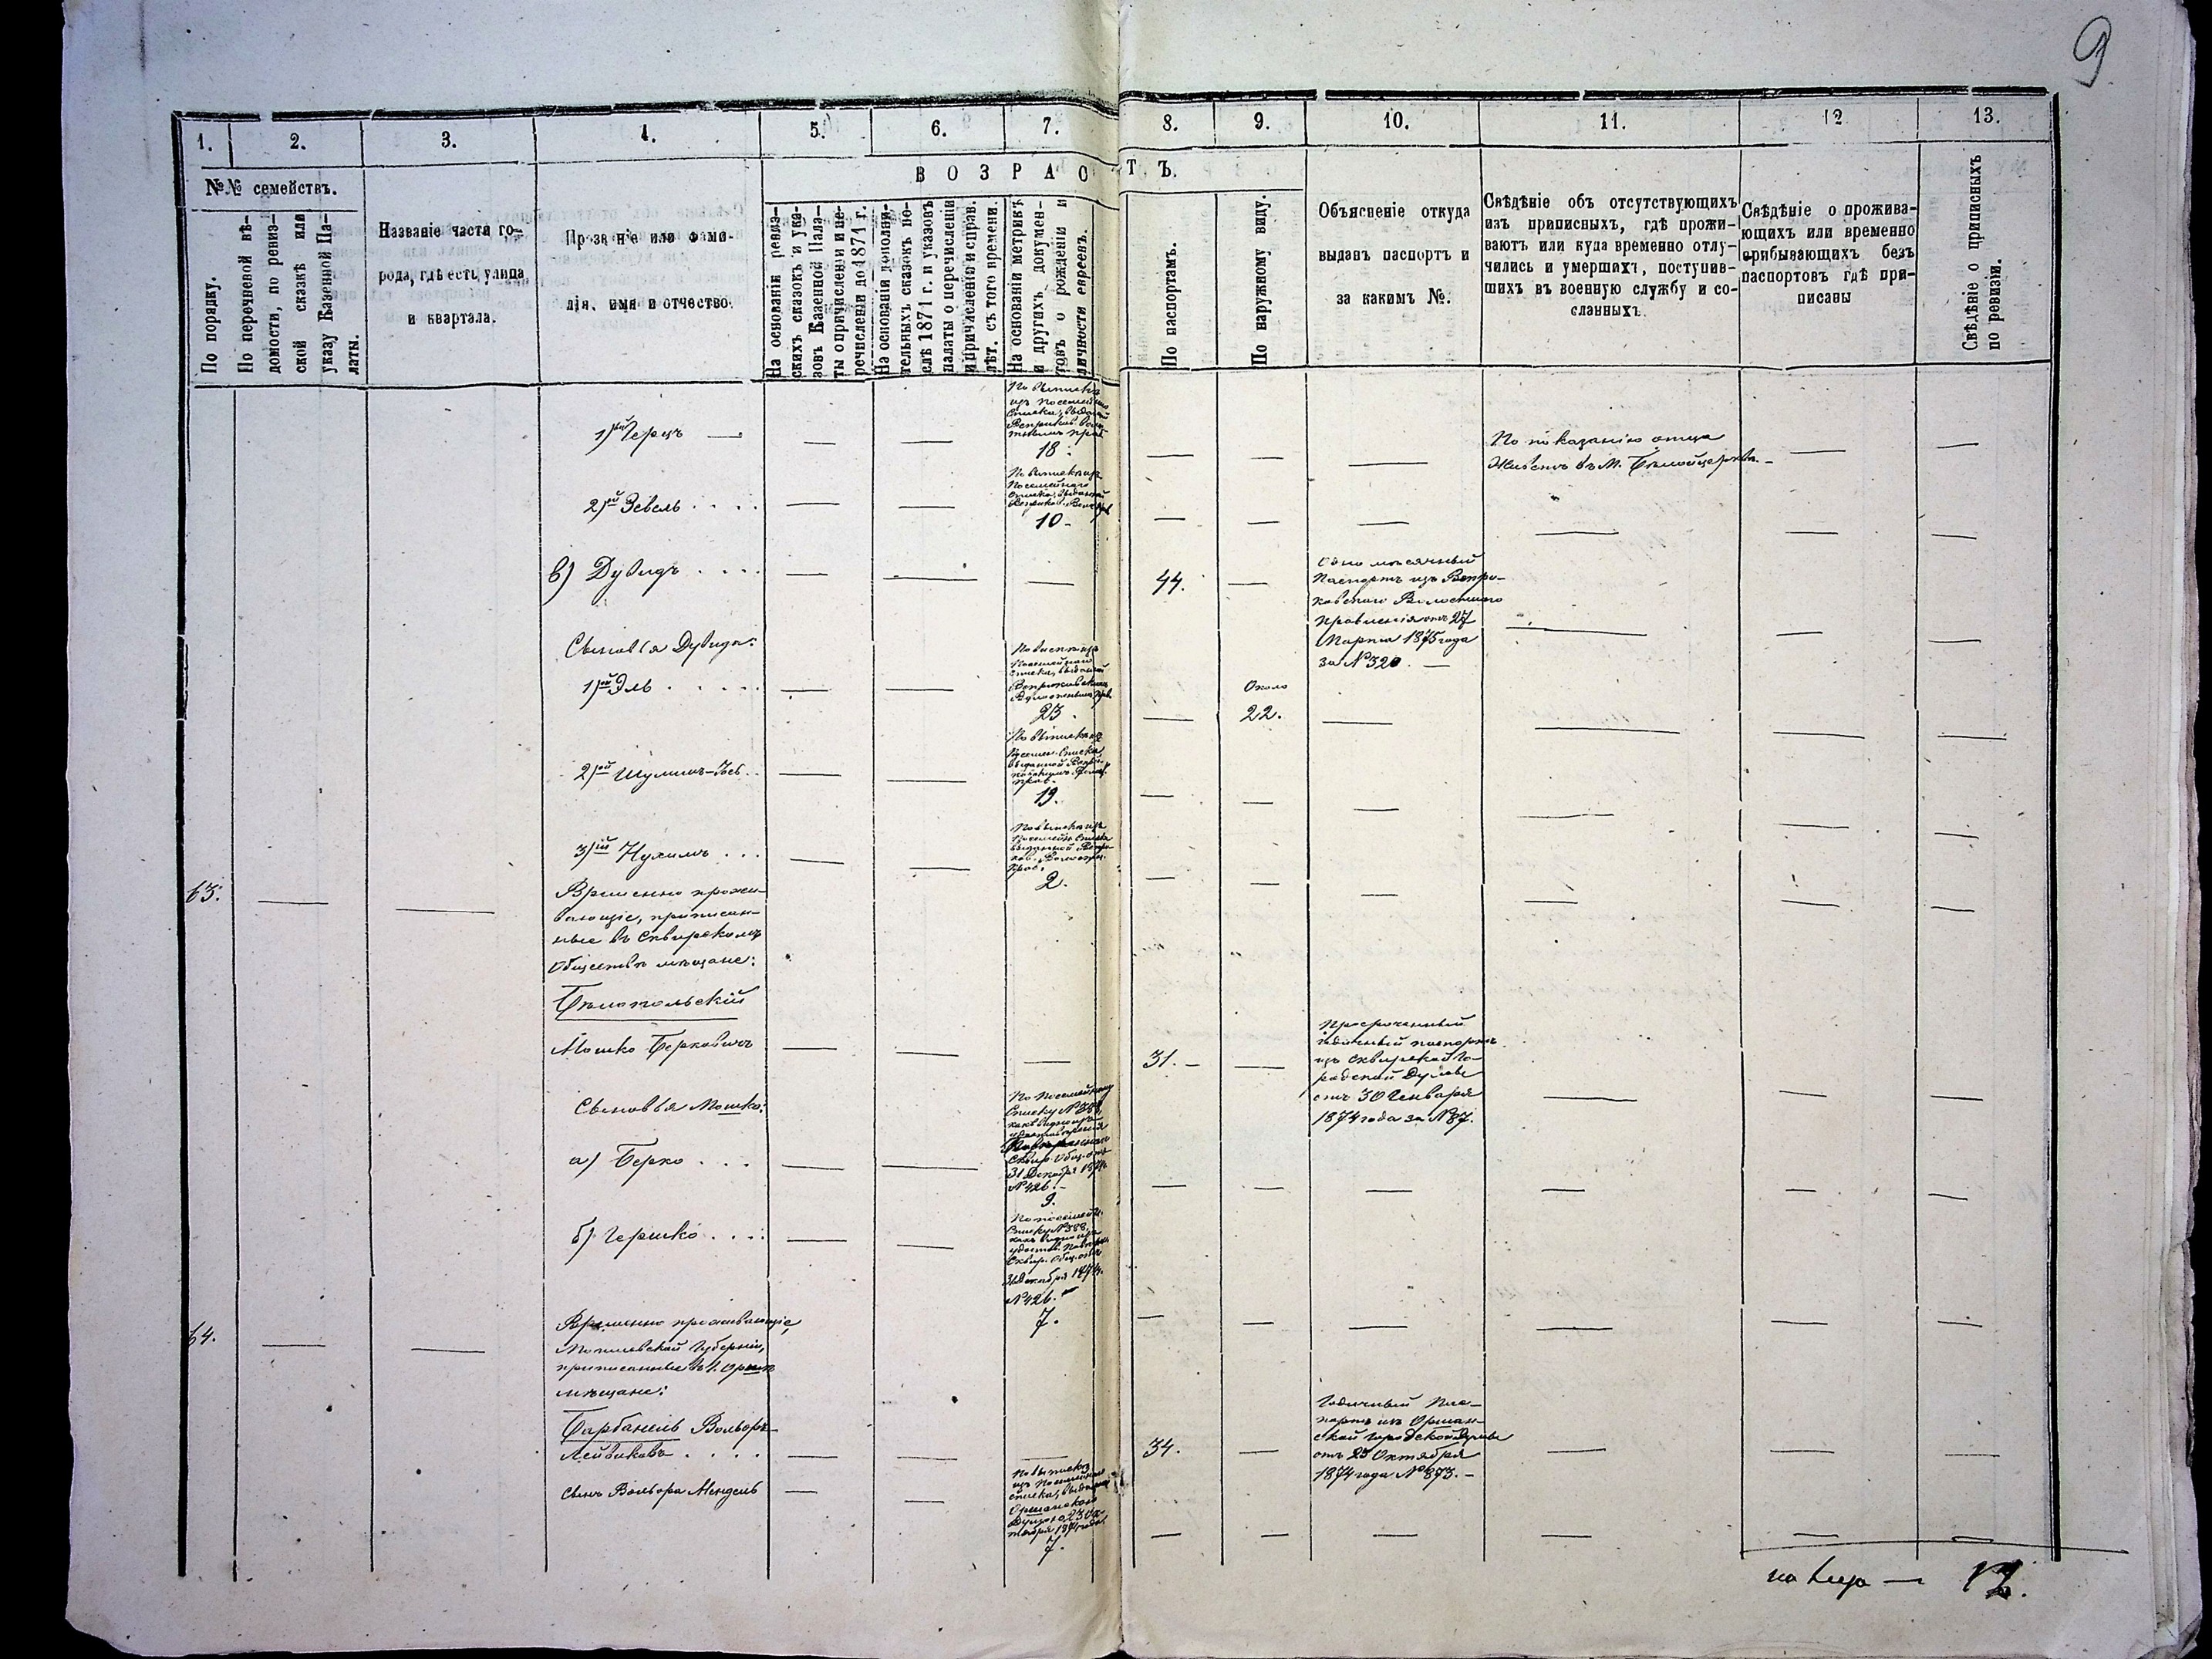 9
1.
2.
3.
4.
5.
6.
7.
8.
9.
10.
11.
12
13.
№№ семействъ.
ВОЗРАСТЪ.
По порядку.
По перечневой вѣ-
домости, по ревиз-
ской сказкѣ или
указу Казенной Па-
латы.
Названіе части го-
рода, гдѣ есть улица
и квартала.
Прозв[ан]іе или фами-
лія, имя и отчество.
На основаніи ревиз-
скихъ сказокъ и ука-
зовъ Казенной Пала-
ты о причисленіи и пе-
речисленіи до 1871 г.
На основаніи дополни-
тельныхъ сказокъ по-
слѣ 1871 г. и указовъ
палаты о перечисленіи
и причисленіи и справ.
лѣт. съ того времени.
На основаніи метрикъ
и другихъ докумен-
товъ о рожденіи и
личности евреевъ.
По паспортамъ.
По наружному виду.
Объясненіе откуда
выданъ паспортъ и
за какимъ №.
Свѣдѣніе объ отсутствующихъ
изъ приписныхъ, гдѣ прожи-
ваютъ или куда временно отлу-
чились и умершихъ, поступив-
шихъ въ военную службу и со-
сланныхъ.
Свѣдѣніе о прожива-
ющихъ или временно
прибывающихъ безъ
паспортовъ гдѣ при-
писаны
Свѣдѣніе о приписныхъ
по ревизіи.
1) Герцъ —
По выписке
изъ посемейнаго
списка, выданой
18
По показанію отца
живетъ въ М. Бѣлойцеркви. -
2)ой Зевель . . . .
По выписке изъ
посемейнаго
списка, выданной
10 -
в) Дувидъ . . . .
44.
Одномѣсячный
паспортъ изъ Вепри-
ковскаго Волостнаго
правленія отъ 27
Марта 1875 года
за №320. —
Сыновья Дувида:
1)ой Эль . . . . .
По выписке изъ
посемейнаго
списка, выданной
23.
Около
22.
2)ой Шулимъ-
По выписке изъ
19.
3)ій Нухимъ . . .
По выписке изъ
2.
63.
Временно прожи-
вающіе, приписан-
ные въ Сквирскомъ
Обществѣ мѣщане:
Бѣлопольскій
Мошко Берковичъ
31. -
Просроченный
годичный паспортъ
изъ Сквирской Го-
родской Думы
отъ 30 Генваря
1874 года за №87.
Сыновья Мошка:
По посемейному
списку №388,
а) Берко . . .
Сквир. Общ. отъ
31 Декабря 1874
№426. -
9.
б) Гершко . . . .
По посемейн.
списку №388,
какъ видно изъ
Сквир. Общ. отъ
31 Декабря 1874.
№426. -
7.
64.
Временно проживающіе,
Могилевской Губерніи,
приписанные въ г. Оршѣ
мѣщане:
Барбанель Вольфъ
Лейвиковъ . . . .
34.
Годичный пас-
портъ изъ Оршан-
ской Городской Думы
отъ 23 Октября
1874 года №873. -
Сынъ Вольфа Мендель
По выписке
изъ посемейнаго
списка, выданной
Оршанскою
Думою 23 Ок-
тября 1874 года
7.
12.